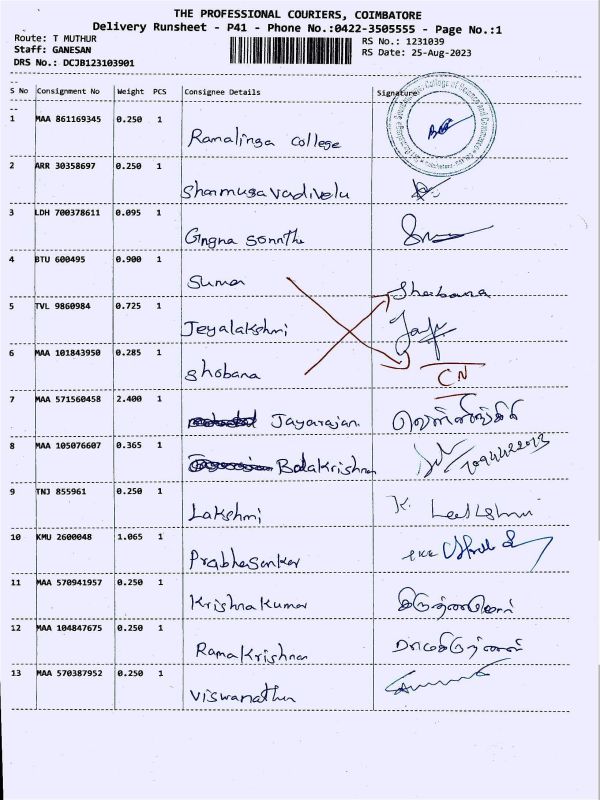 THE PROFESSIONAL COURIERS, COIMBATORE
Delivery Runsheet - P41 - Phone No.:0422-3505555 - Page No.:1
Route: T MUTHUR
RS No.: 1231039
Staff: GANESAN
RS Date: 25-Aug-2023
DRS No.: DCJB123103901
S No Consignment No Weight PCS Consignee Details Signature
1 MAA 861169345 0.250 1 Ramalinga College
2 ARR 30358697 0.250 1 Shanmugavadivelu
3 LDH 700378611 0.095 1
4 BTU 600495 0.900 1 Suman Shobana
5 TVL 9860984 0.725 1 Jeyalakshmi
6 MAA 101843950 0.285 1 Shobana CN
7 MAA 571560458 2.400 1 Jayarajan
8 MAA 105076607 0.365 1 Balakrishnan
9 TNJ 855961 0.250 1 Lakshmi K.
10 KMU 2600048 1.065 1 Prabhasankar
11 MAA 570941957 0.250 1 Krishnakumar
12 MAA 104847675 0.250 1 Ramakrishnan
13 MAA 570387952 0.250 1 Viswanathan